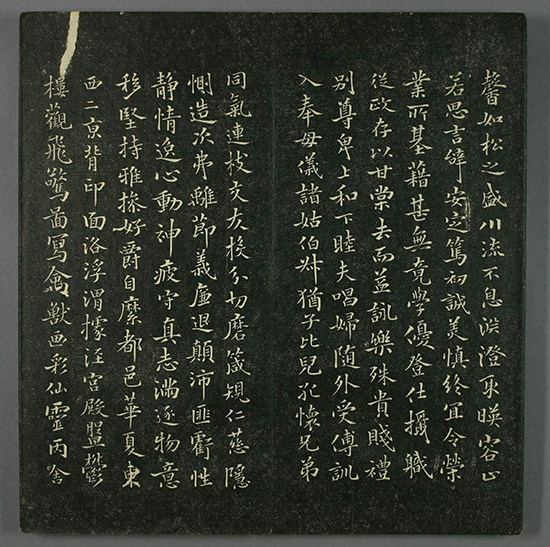 馨如松之盛川流不息淵澄取暎容止
若思言辞安定篤初誠美慎終宜令榮
業所基藉甚無竟學優登仕攝職
從政存以甘棠去而益詠樂殊貴賤禮
別尊卑上和下睦夫唱婦隨外受傅訓
入奉母儀諸姑伯叔猶子比兒孔懷兄弟
同氣連枝交友投分切磨箴規仁慈隱
惻造次弗離節義廉退顛沛匪虧性
静情逸心動神疲守真志滿逐物意
移堅持雅操好爵自縻都邑華夏東
西二京背邙面洛浮渭據涇宮殿盤欝
樓觀飛驚圖寫禽獸畫彩仙靈丙舍